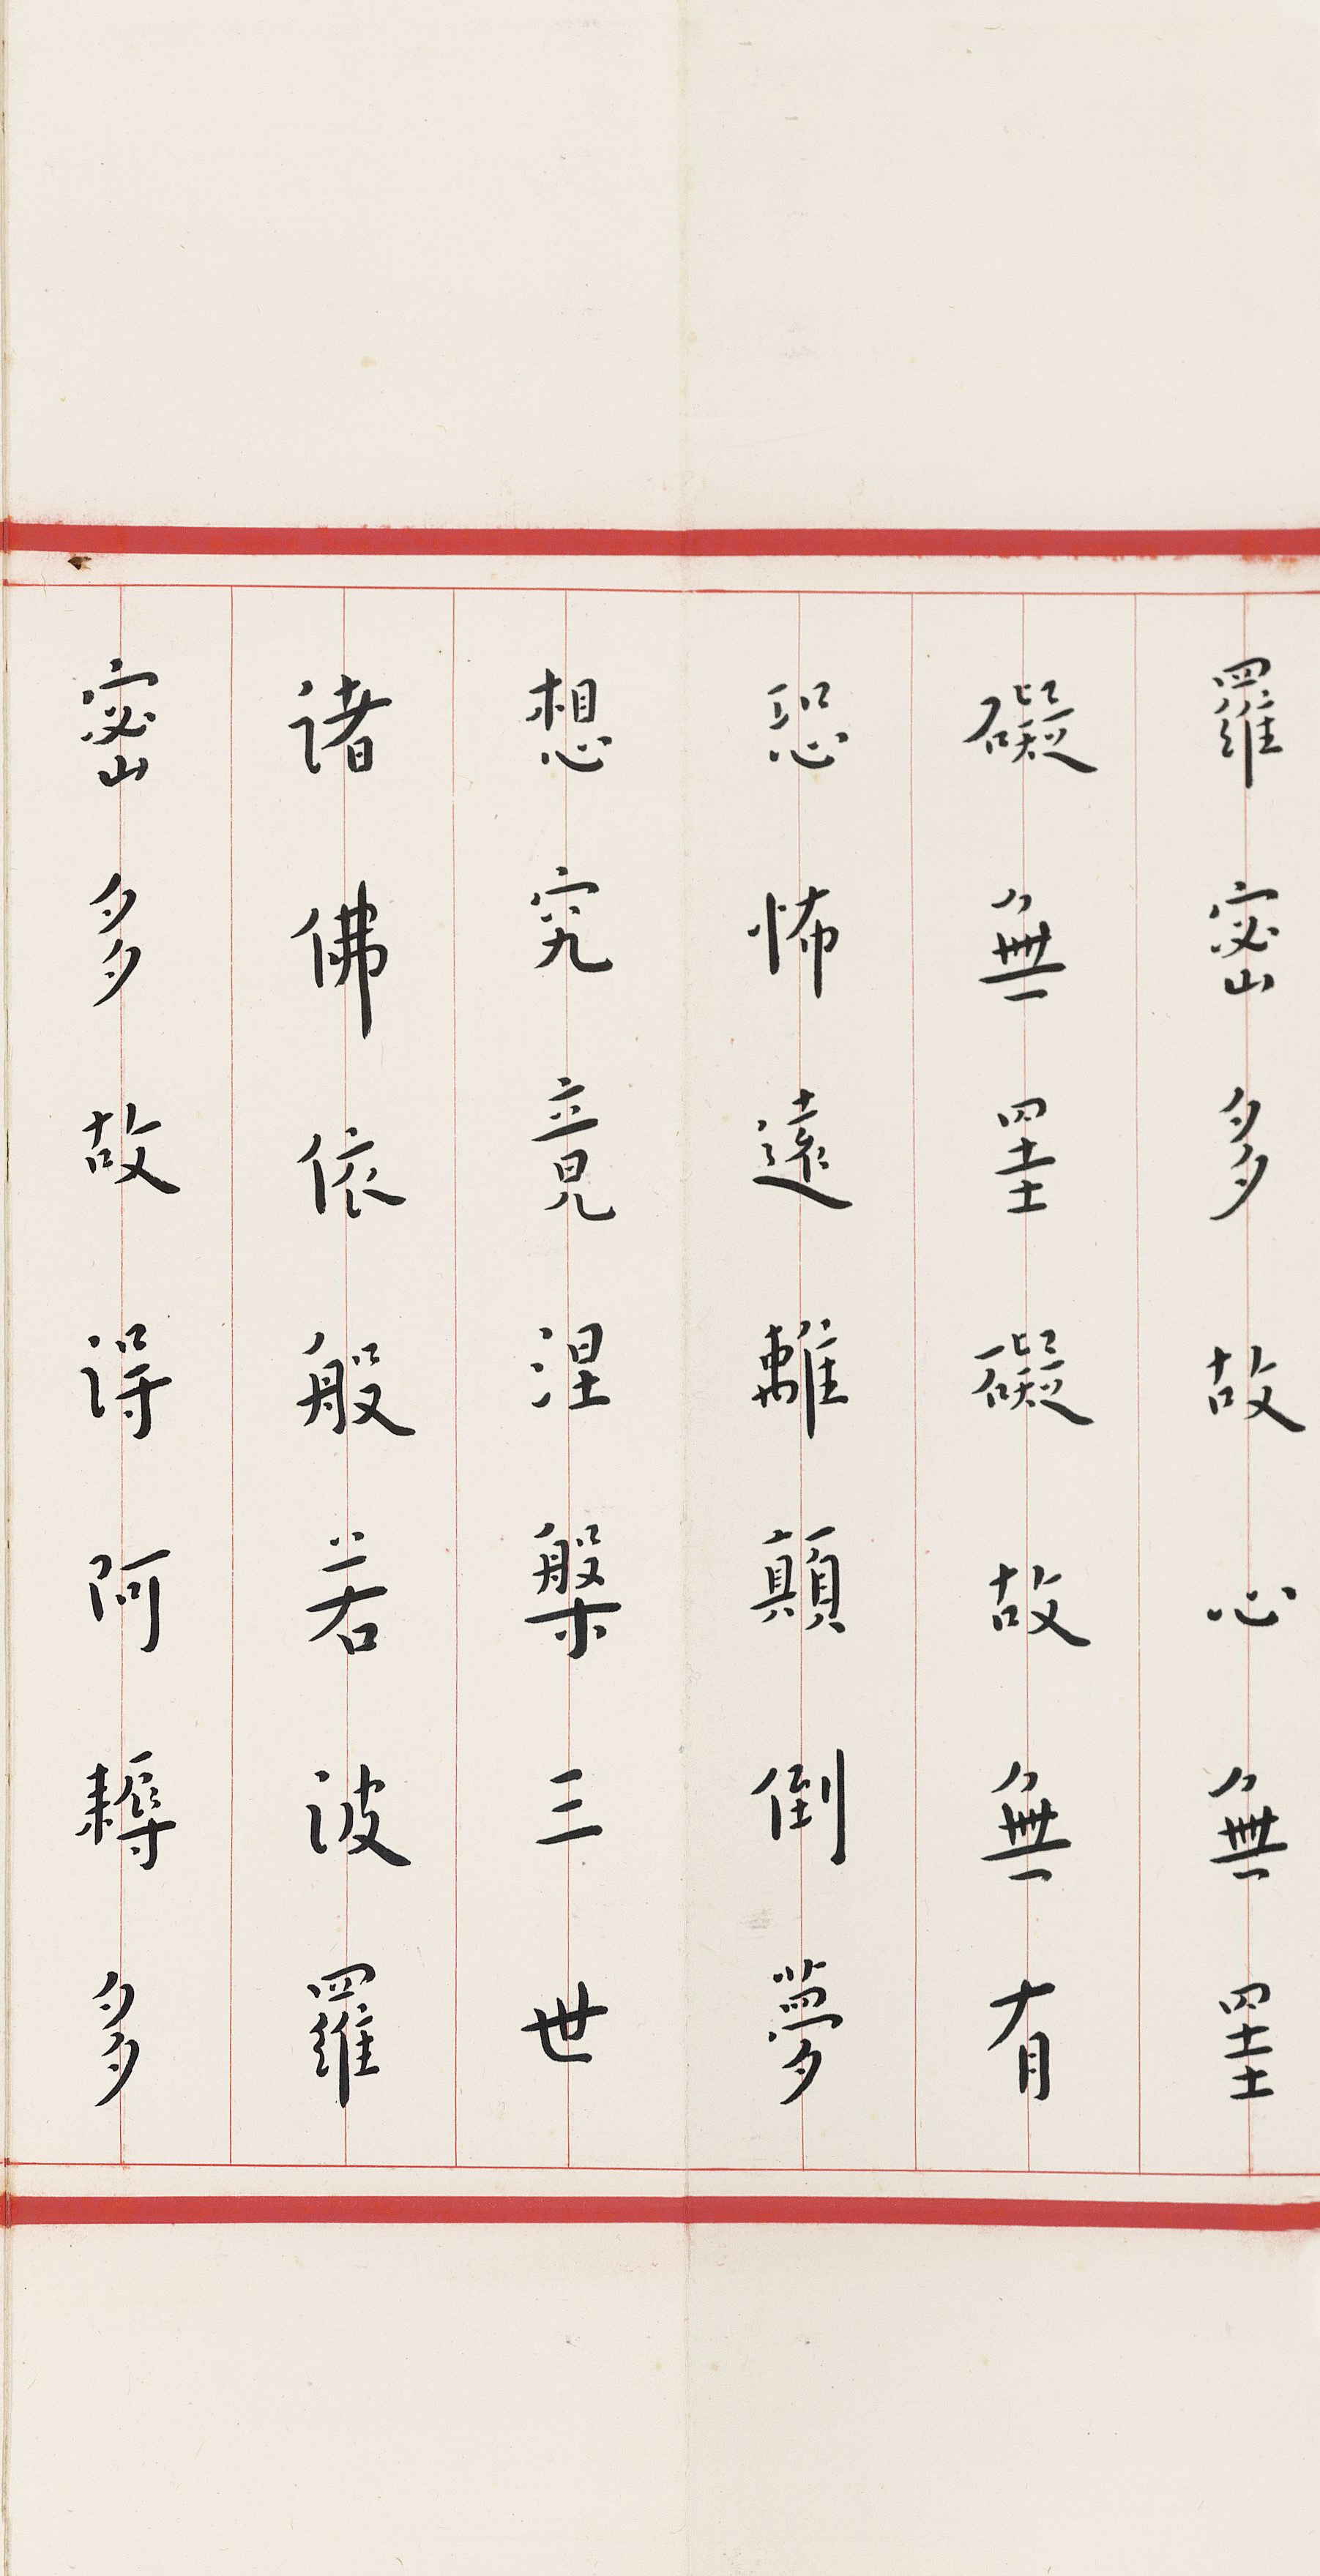 羅密多故心無罣
礙無罣礙故無有
恐怖遠離顛倒夢
想究竟涅槃三世
諸佛依般若波羅
密多故得阿耨多